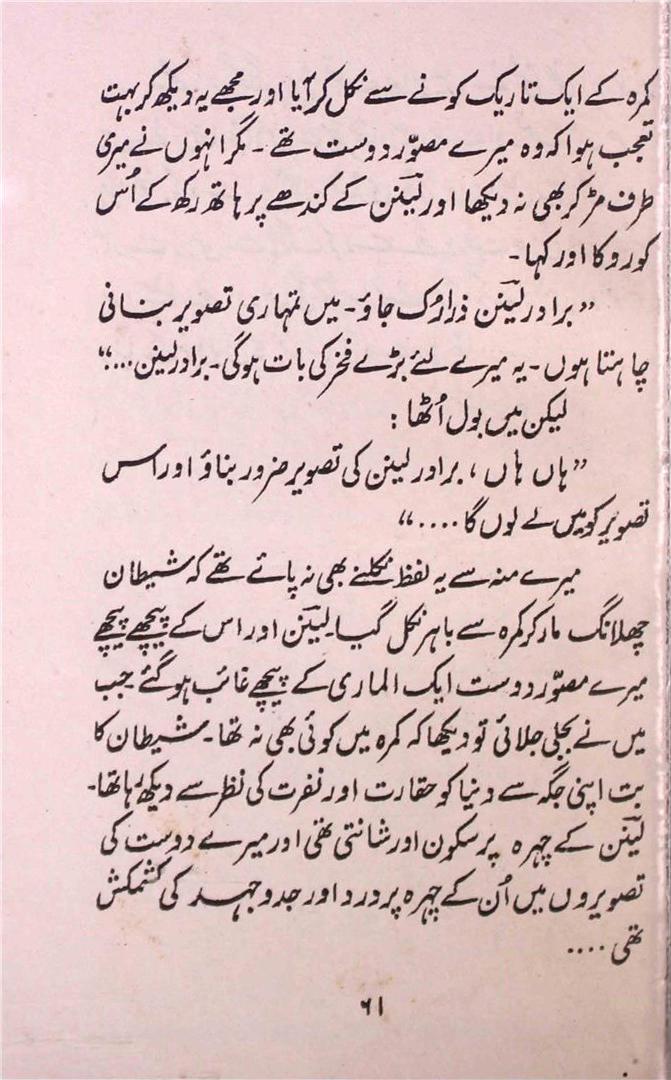 کمرہ کے ایک تاریک کونے سے نکل کر آیا اور مجھے یہ دیکھ کر بہت
تعجب ہوا کہ وہ میرے مصوّر دوست تھے ۔ مگر انہوں نے میری
طرف مڑ کر بھی نہ دیکھا اور لینن کے کندھے پر ہاتھ رکھ کے اُس
کو روکا اور کہا ۔
”برادر لینن ذرا رُک جاؤ ۔ میں تمہاری تصویر بنانی
چاہتا ہوں ۔ یہ میرے لئے بڑے فخر کی بات ہوگی ۔ برادر لینن ...“
لیکن میں بول اُٹھا :
”ہاں ہاں ، برادر لینن کی تصویر ضرور بناؤ اور اس
تصویر کو میں لے لوں گا ....“
میرے منہ سے یہ لفظ نکلنے بھی نہ پائے تھے کہ شیطان
چھلانگ مار کر کمرہ سے باہر نکل گیا ۔ لینن اور اس کے پیچھے پیچھے
میرے مصوّر دوست ایک الماری کے پیچھے غائب ہو گئے ۔ جب
میں نے بجلی جلائی تو دیکھا کہ کمرہ میں کوئی بھی نہ تھا ۔ شیطان کا
بت اپنی جگہ سے دنیا کو حقارت اور نفرت کی نظر سے دیکھ رہا تھا ۔
لینن کے چہرہ پر سکون اور شانتی تھی اور میرے دوست کی
تصویروں میں اُن کے چہرہ پر درد اور جدوجہد کی کشمکش
تھی ....
۶۱